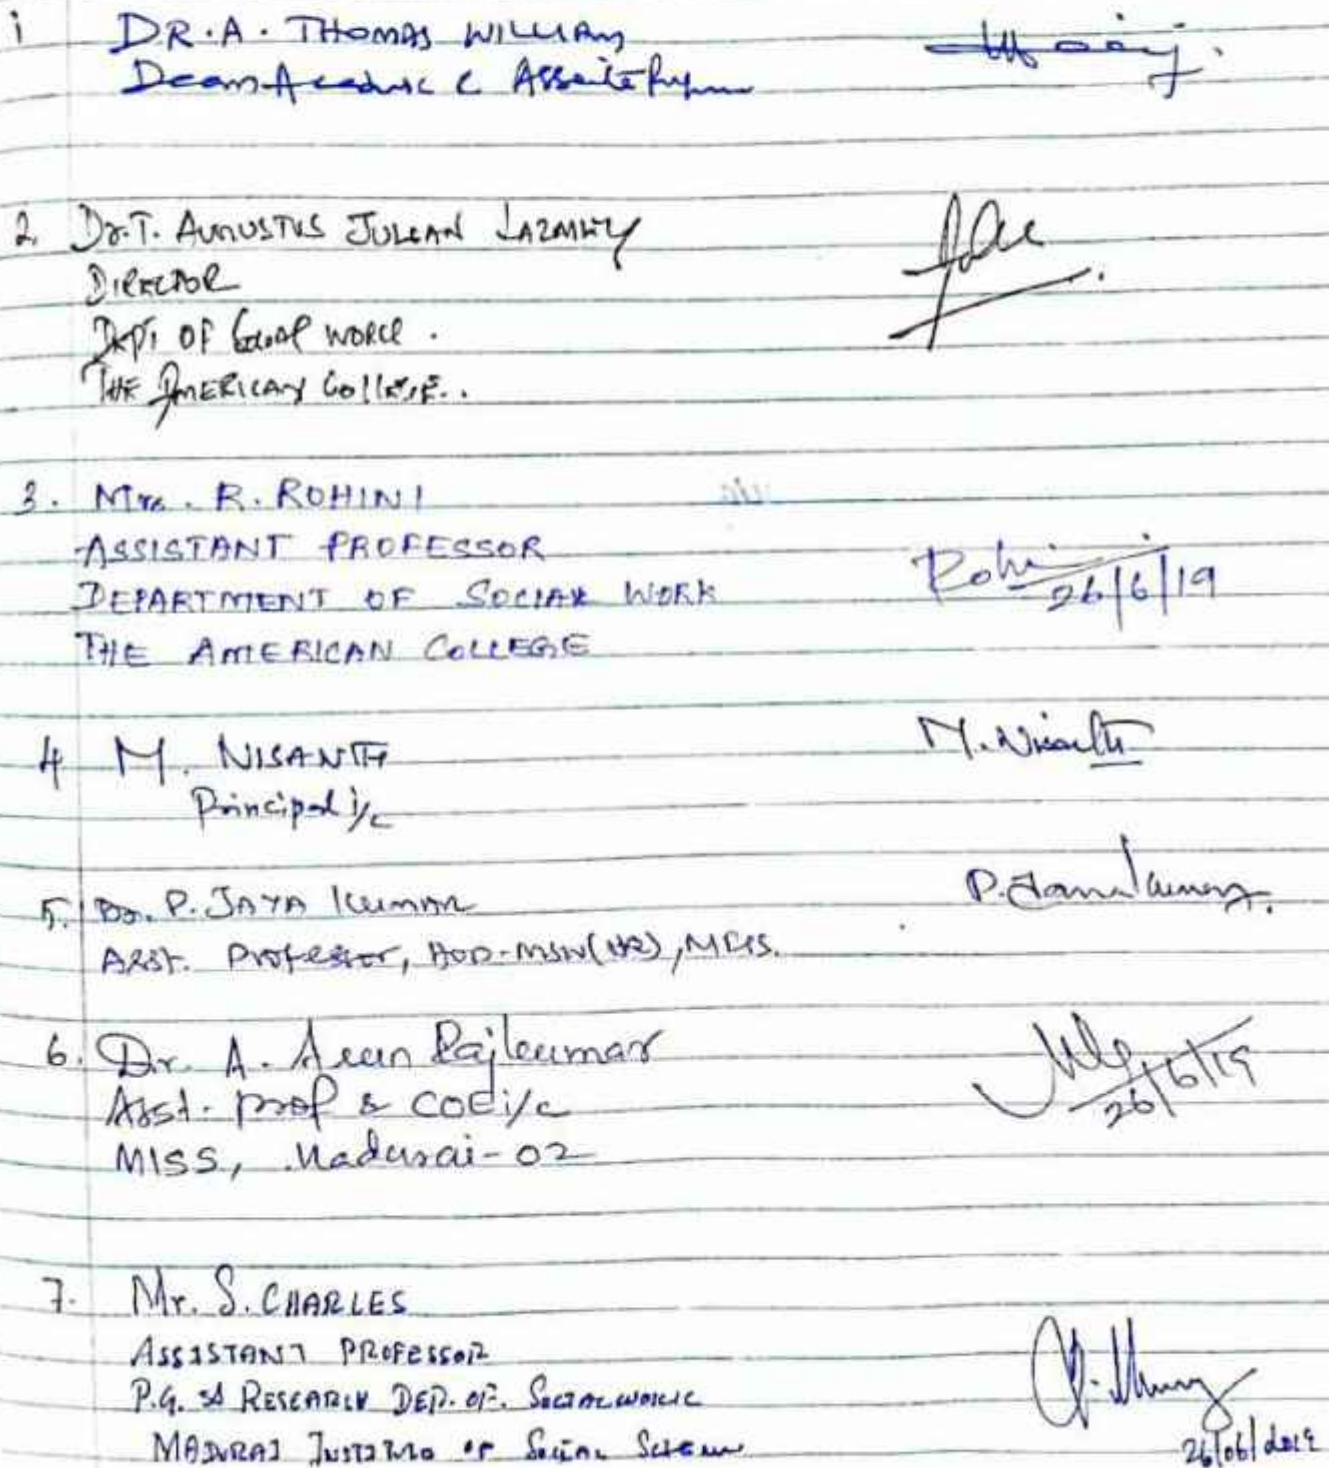 1 DR. A. THOMAS WILLIAM
Dean-Academic &
2. Dr. T. AUGUSTUS JULIAN LAZMEY
DIRECTOR
DEPT OF Social WORK.
THE AMERICAN COLLEGE..
3. Mrs. R. ROHINI
ASSISTANT PROFESSOR
Rohini 26/6/19
DEPARTMENT OF SOCIAL WORK
THE AMERICAN COLLEGE
4 M. NISANTH M. Nisanth
Principal i/c
5. Dr. P. JAYA KUMAR P. Jayakumar.
Asst. Professor, HOD-MSW(HR), MISS.
6. Dr. A. Arun Rajkumar
Asst. prof & COE i/c 26/6/19
MISS, Madurai-02
7. Mr. S. CHARLES
ASSISTANT PROFESSOR
P.G. & RESEARCH DEP. OF. SOCIAL WORK
MADURAI INSTITUTE OF SOCIAL SCIENCES 26/06/2019